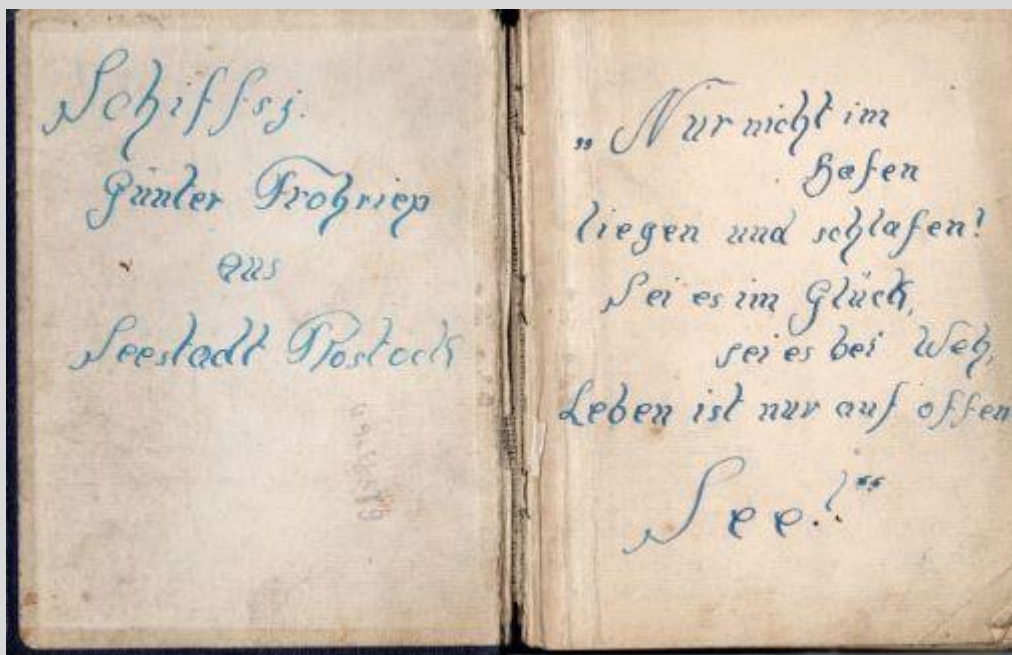 Schiffsj.
Günter Frohriep
aus
Seestadt Rostock
„Nur nicht im
Hafen
liegen und schlafen!
Sei es im Glück,
sei es bei Weh,
Leben ist nur auf offen
See!“